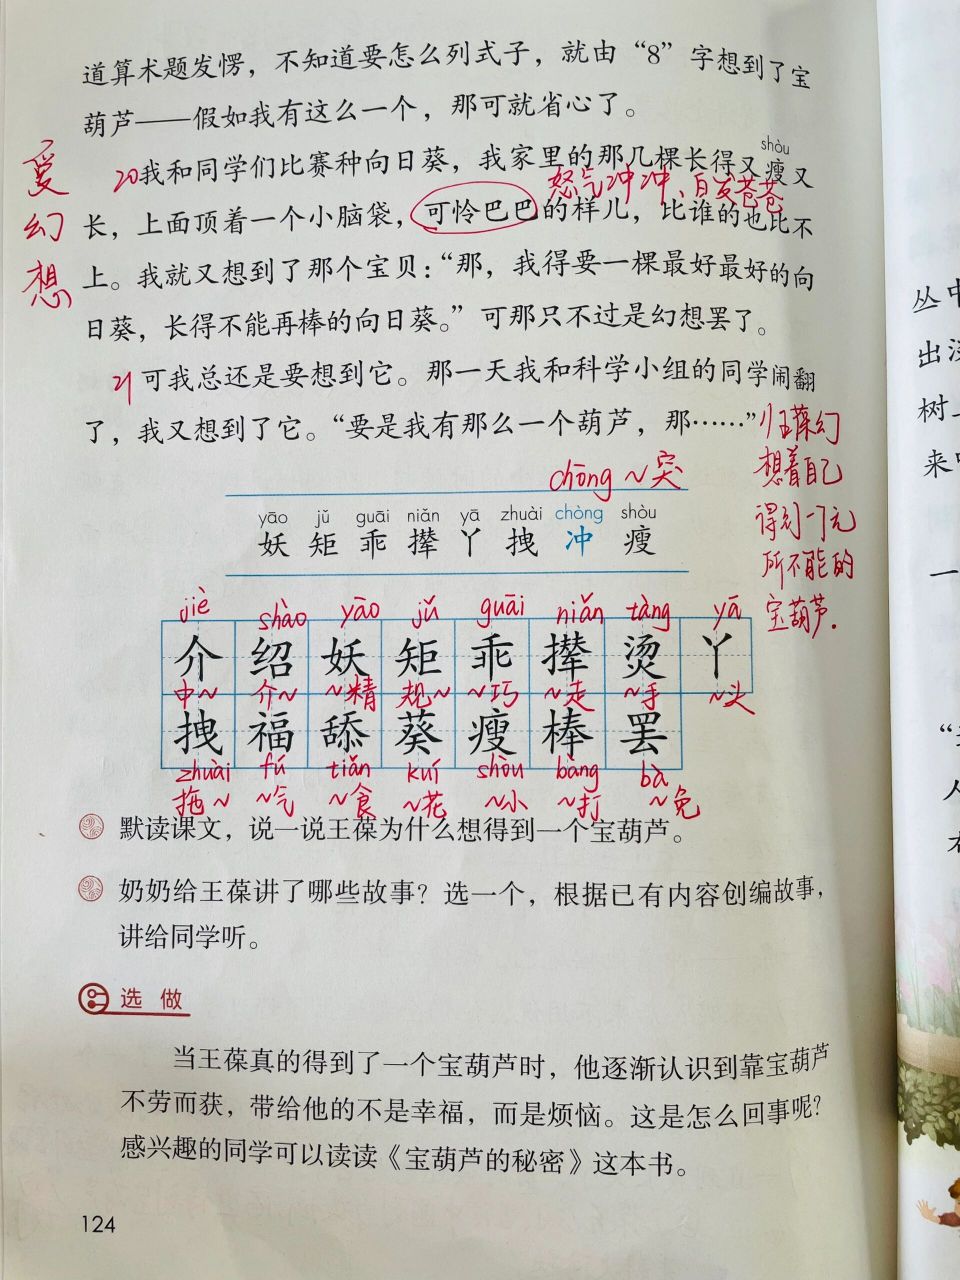 道算术题发愣，不知道要怎么列式子，就由“8”字想到了宝
葫芦——假如我有这么一个，那可就省心了。
shòu
20我和同学们比赛种向日葵，我家里的那几棵长得又瘦又
怒气冲冲、白发苍苍
长，上面顶着一个小脑袋，可怜巴巴的样儿，比谁的也比不
上。我就又想到了那个宝贝：“那，我得要一棵最好最好的向
日葵，长得不能再棒的向日葵。”可那只不过是幻想罢了。
爱
幻
想
21可我总还是要想到它。那一天我和科学小组的同学闹翻
了，我又想到了它。“要是我有那么一个葫芦，那……”
王葆幻
想着自己
得到一个无
所不能的
宝葫芦.
chōng ~突
yāo jǔ guāi niǎn yā zhuài chòng shòu
妖 矩 乖 撵 丫 拽 冲 瘦
jiè shào yāo jǔ guāi niǎn tàng yā
介 绍 妖 矩 乖 撵 烫 丫
中~ 介~ ~精 规~ ~巧 ~走 ~手 ~头
拽 福 舔 葵 瘦 棒 罢
zhuài fú tiǎn kuí shòu bàng bà
拖~ ~气 ~食 ~花 ~小 ~打 ~免
默读课文，说一说王葆为什么想得到一个宝葫芦。
奶奶给王葆讲了哪些故事？选一个，根据已有内容创编故事，
讲给同学听。
选做
当王葆真的得到了一个宝葫芦时，他逐渐认识到靠宝葫芦
不劳而获，带给他的不是幸福，而是烦恼。这是怎么回事呢？
感兴趣的同学可以读读《宝葫芦的秘密》这本书。
124
丛中
出
树
来
一